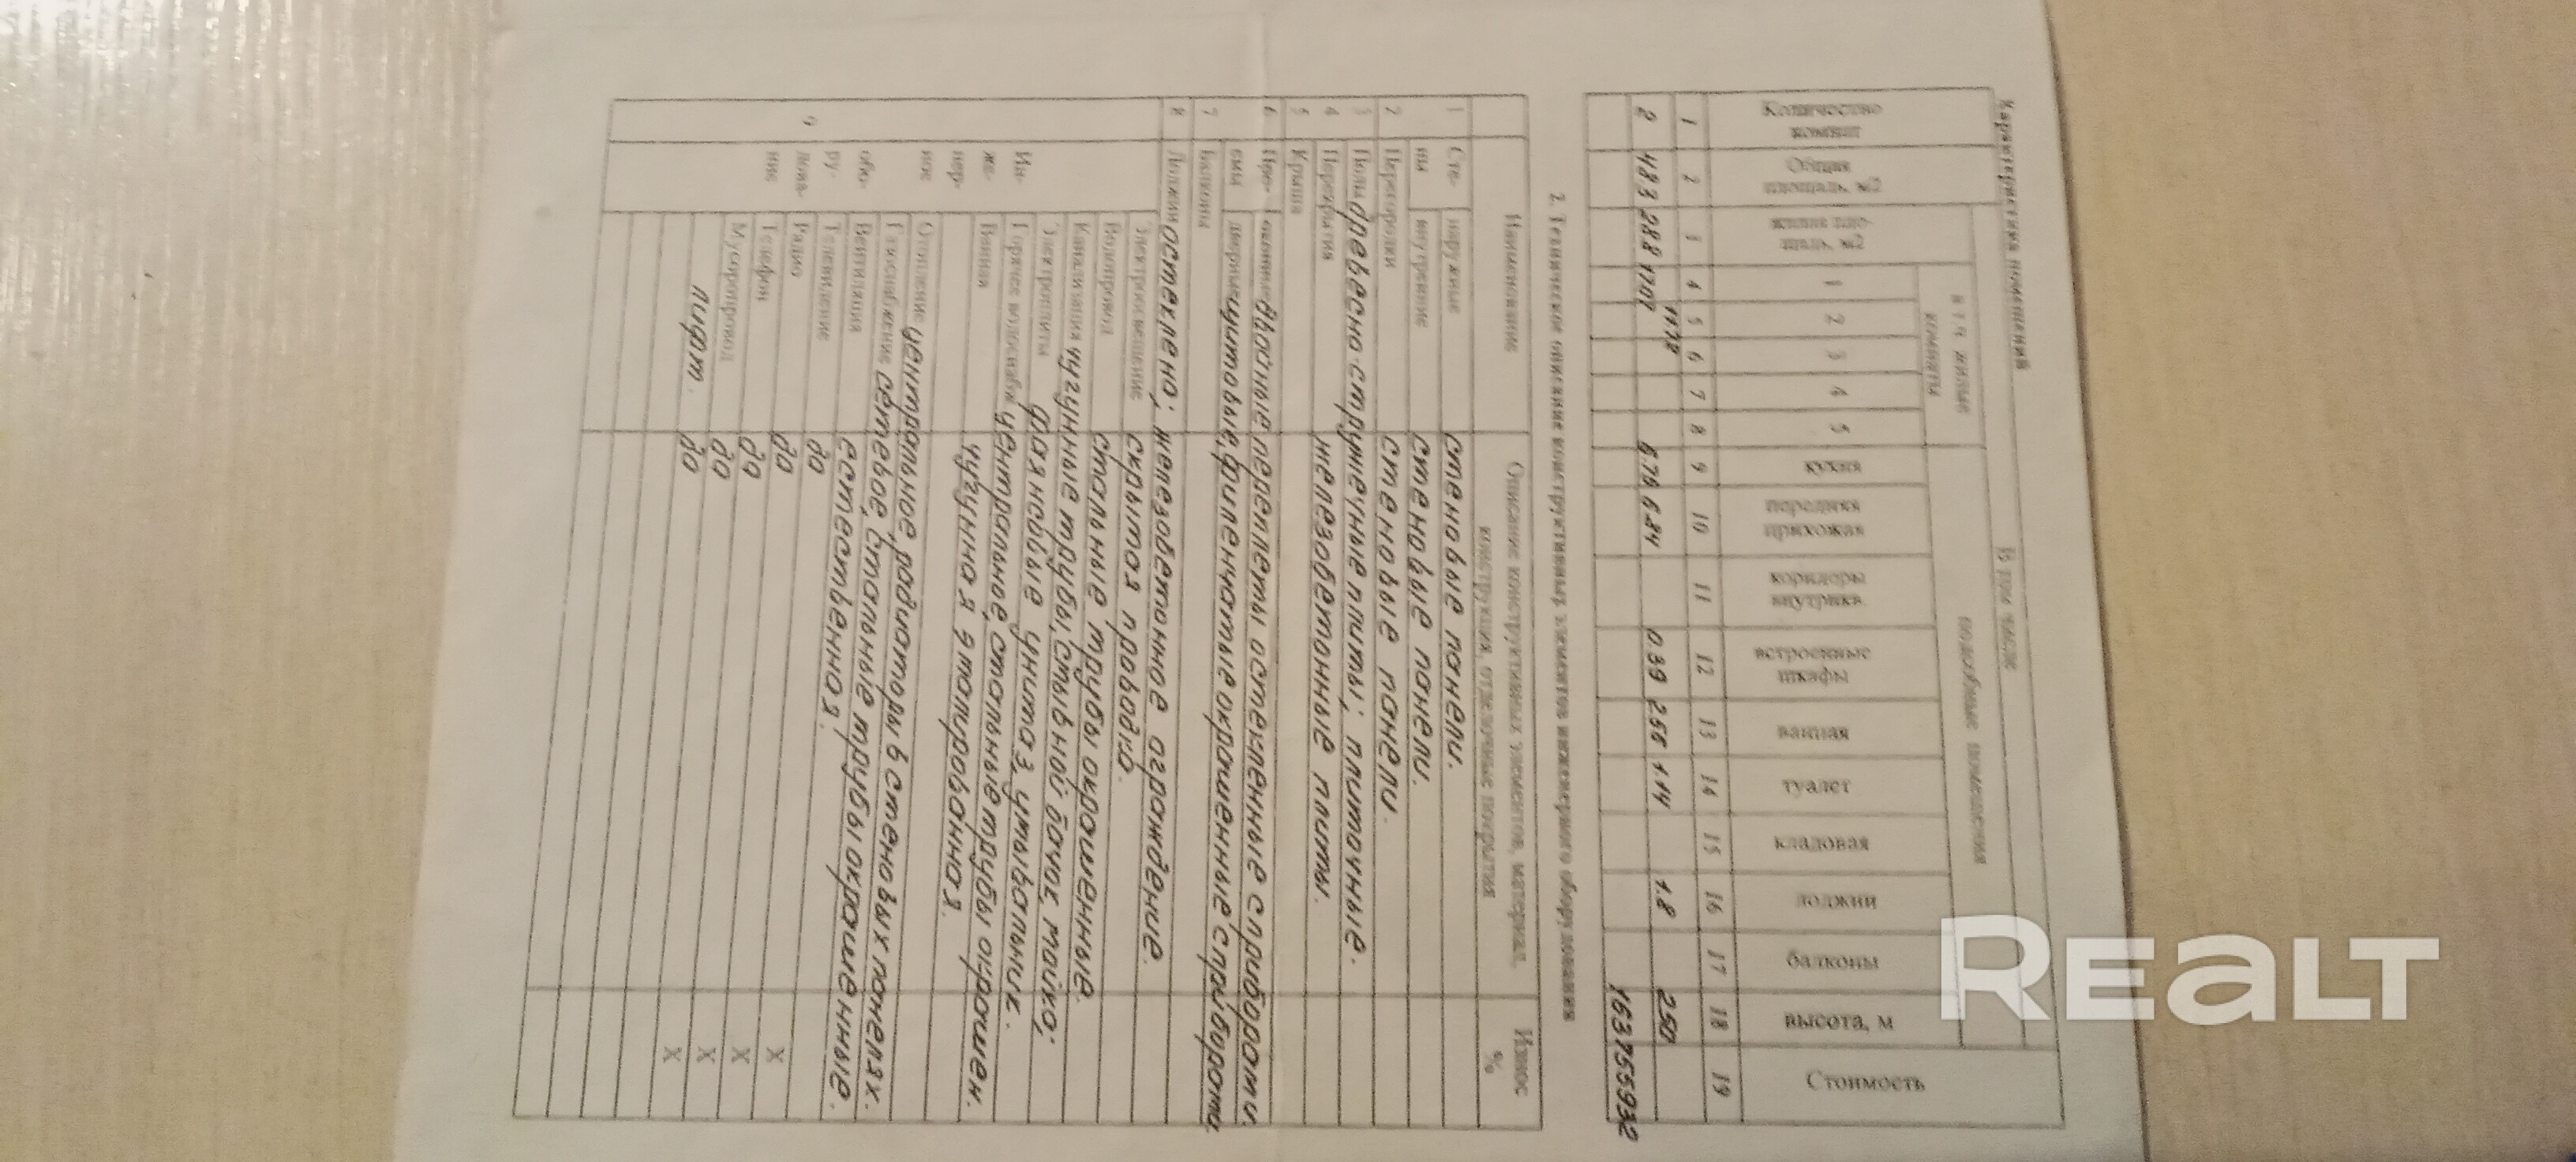 Характеристика помещений
Количество комнат
Общая площадь, м2
жилая пло-
щадь, м2
В том числе
в т.ч. жилые комнаты
подсобные помещения
1 2 3 4 5
кухня
передняя прихожая
коридоры внутрикв.
встроенные шкафы
ванная
туалет
кладовая
лоджии
балконы
высота, м
Стоимость
1 2 3 4 5 6 7 8 9 10 11 12 13 14 15 16 17 18 19
2 48.3 28.8 17.07 11.72 6.84 0.39 2.55 1.14 1.8 2.50
1637555932
2. Техническое описание конструктивных элементов инженерного оборудования
Наименование
Описание конструктивных элементов, материал,
конструкция, отделочные покрытия
Износ %
1 Сте-ны наружные стеновые панели.
внутренние стеновые панели.
2 Перегородки стеновые панели.
3 Полы древесно-стружечные плиты; плиточные.
4 Перекрытия железобетонные плиты.
5 Крыша
6 Прое-мы оконные двойные переплеты остекленные с приборами.
дверные щитовые, филенчатые окрашенные с приборами.
7 Балконы
8 Лоджии остеклено; железобетонное ограждение.
9 Ин-же-нер-ное обо-ру-дова-ние
Электроосвещение скрытая проводка.
Водопровод стальные трубы окрашенные.
Канализация чугунные трубы, смывной бачок, мойка;
Электроплиты фаянсовые унитаз, умывальник.
Горячее водоснабж центральное, стальные трубы окрашен.
Ванная чугунная эмалированная.
Отопление центральное, радиаторы в стеновых панелях.
Газоснабжение сетевое, стальные трубы окрашенные.
Вентиляция естественная.
Телевидение да
Радио да X
Телефон да X
Мусоропровод да X
лифт. да X
REALT